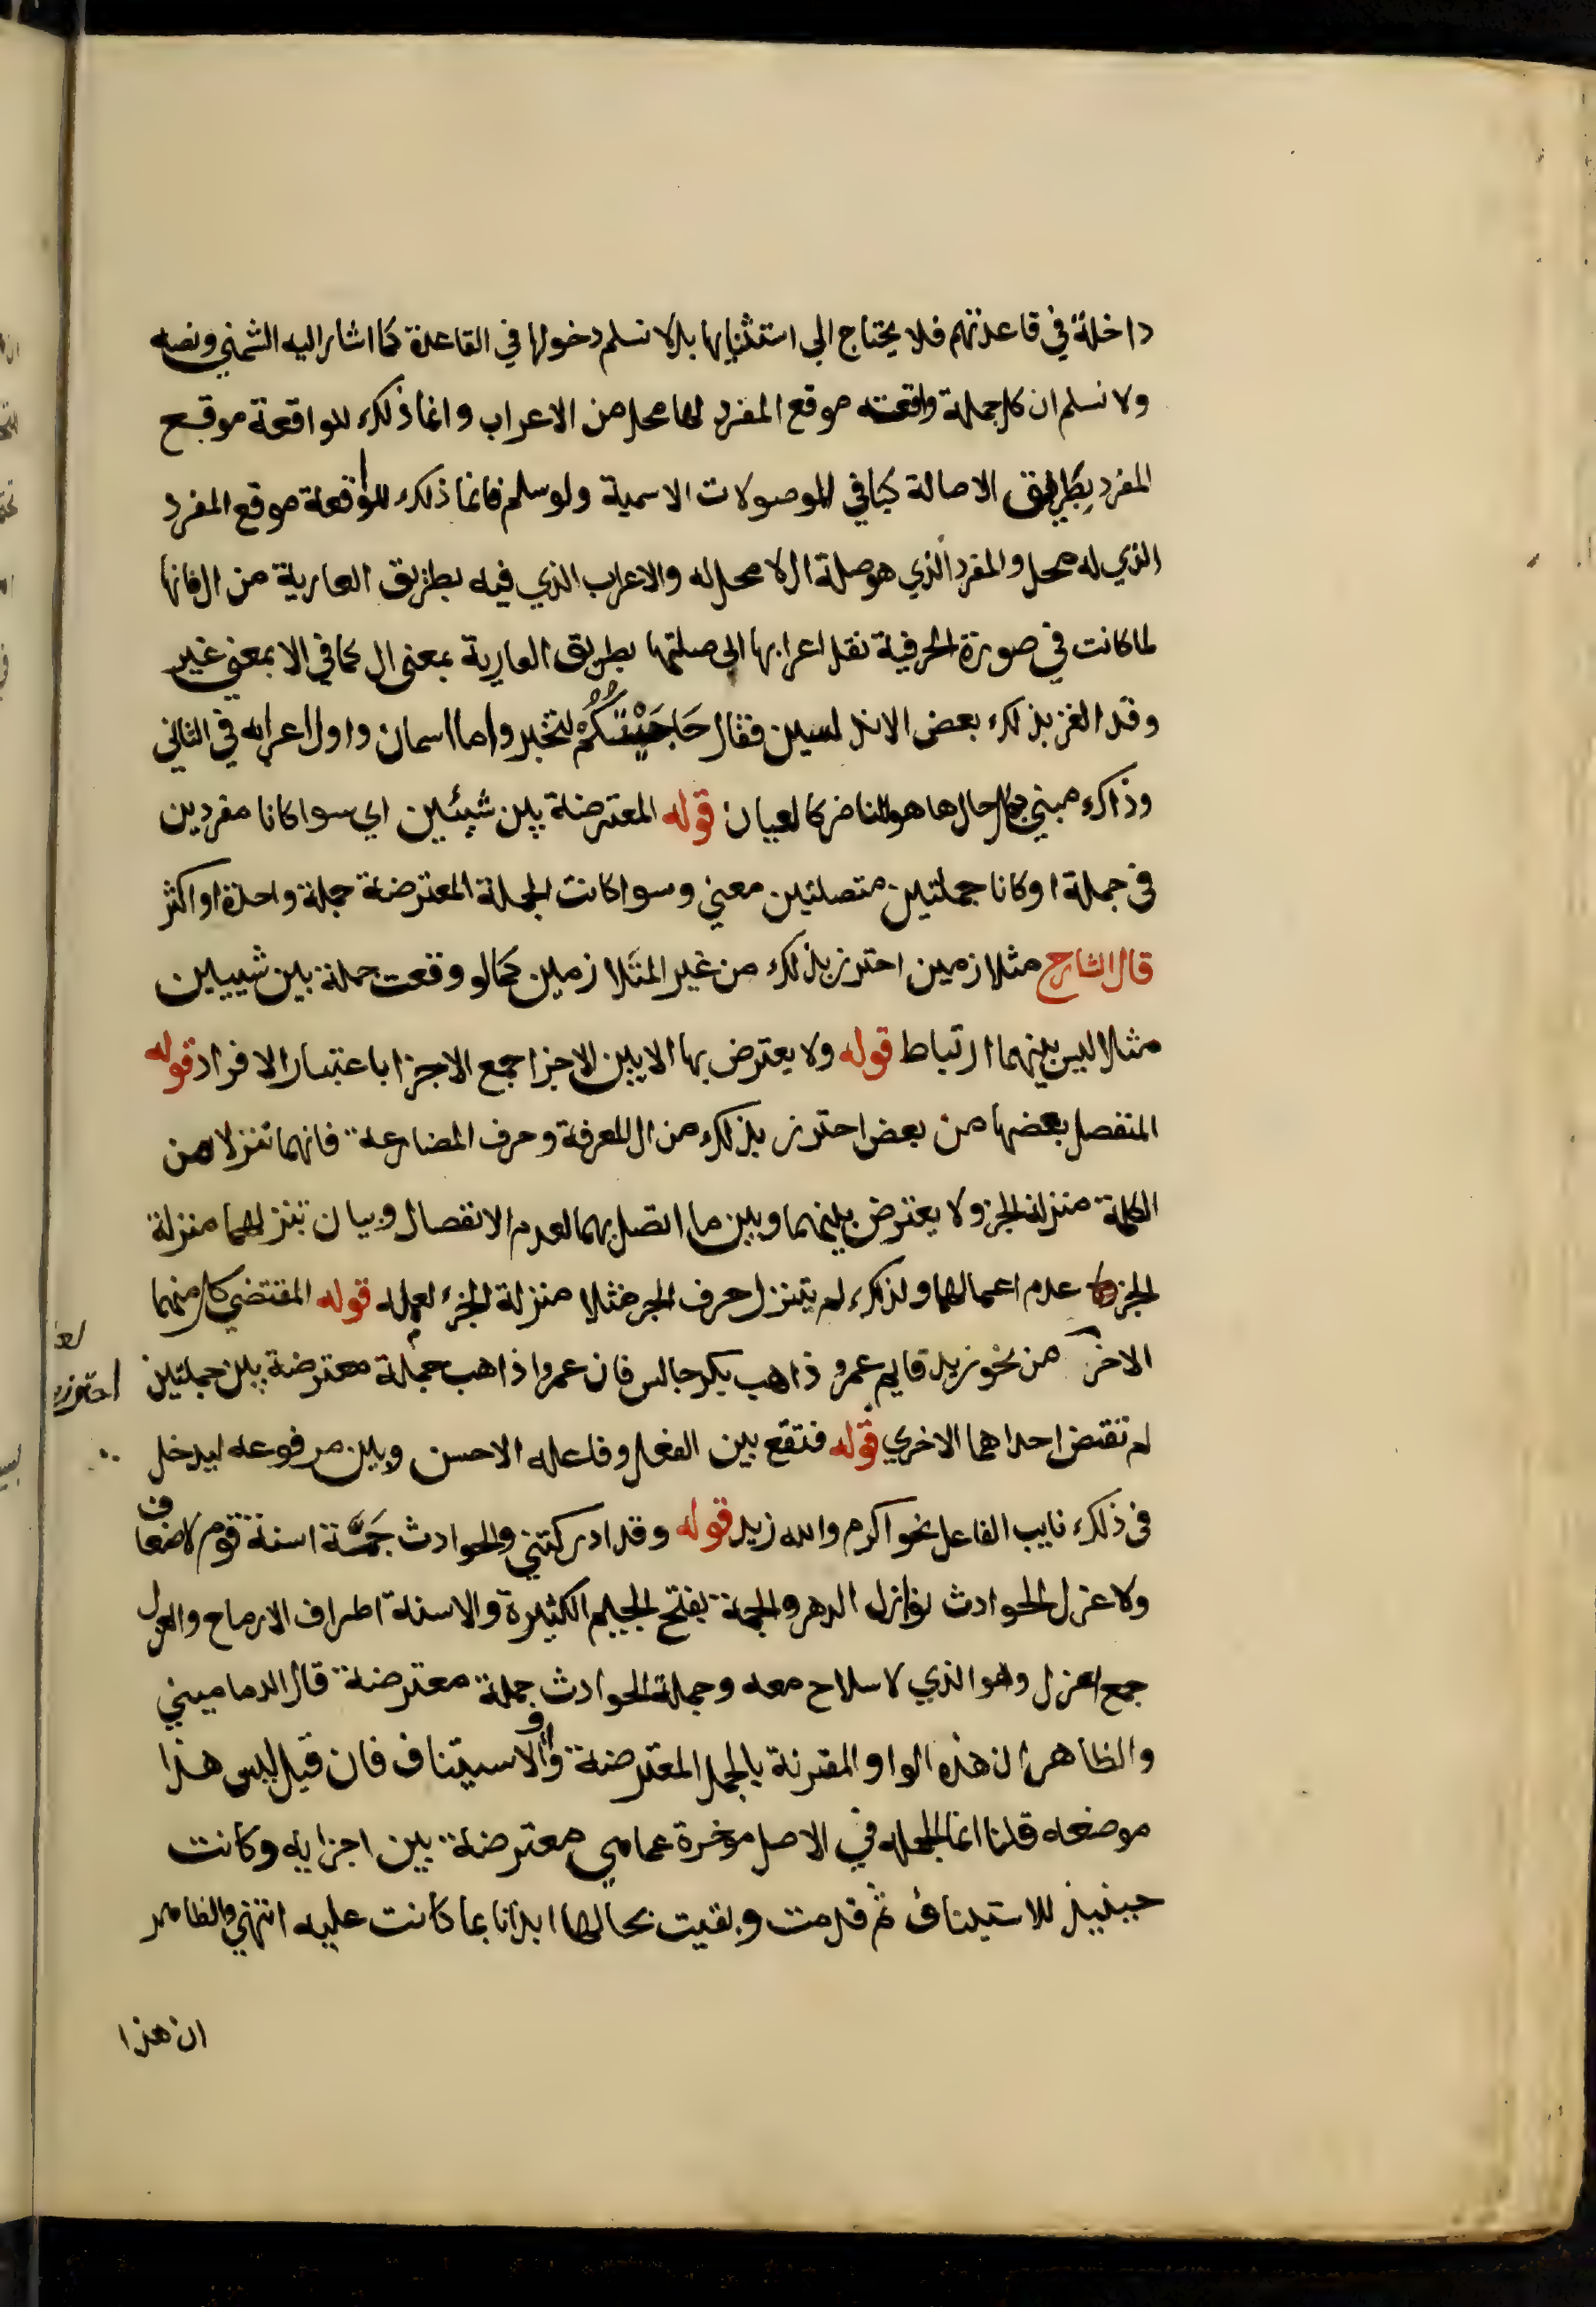 داخلة في قاعدتهم فلا يحتاج الي استثنايها بل لا نسلم دخولها في القاعدة كما اشار اليه الشمني ونصه
ولا نسلم ان كل جملة واقعة موقع المفرد لها محل من الاعراب وانما ذلك للواقعة موقع
المفرد بطريق الاصالة كما في الموصولات الاسمية ولو سلم فانما ذلك للواقعة موقع المفرد
الذي له محل والمفرد الذي هو صلة ال لا محل له والاعراب الذي فيه بطريق العارية من ال فانها
لما كانت في صورة الحرفية نقل اعرابها الي صلتها بطريق العارية بمعني ال كما في الا بمعني غير
وقد الغز بذلك بعض الاندلسين فقال حَاجَيْتُكُمْ لتخبروا ما اسمان واول اعرابه في الثاني
وذاك مبني بكل حال ها هو للناضر كالعيان قوله المعترضة بين شيئين اي سوا كانا مفردين
في جملة او كانا جملتين متصلتين معني وسوا كانت الجملة المعترضة جملة واحدة او اكثر
قال الشارح متلازمين احترز بذلك من غير المتلازمين كما لو وقعت جملة بين شييين
مثلا ليس بينهما ارتباط قوله ولا يعترض بها الا بين الاجزا جمع الاجزا باعتبار الافراد قوله
المنفصل بعضها من بعض احترز بذلك من ال المعرفة وحرف المضارعة فانهما تنزلا من
الكلمة منزلة الجز ولا يعترض بينهما وبين ما اتصل بهما لعدم الانفصال وبيان تنزلهما منزلة
الجز عدم اعمالهما ولذلك لم يتنزل حرف الجر مثلا منزلة الجزء لعمله قوله المقتضي كل منهما
الاخر احترز به من نحو زيد قايم عمرو ذاهب بكر جالس فان عمروا ذاهب جملة معترضة بين جملتين
لم تقتض احداهما الاخري قوله فتقع بين الفعل وفاعله الاحسن وبين مرفوعه ليدخل
في ذلك نايب الفاعل نحو اكرم والله زيد قوله وقد ادركتني والحوادث جَمَّة اسنة قوم لا ضعاف
ولا عزل الحوادث نوازل الدهر والجمة بفتح الجيم الكثيرة والاسنة اطراف الارماح والعزل
جمع اعزل وهو الذي لا سلاح معه وجملة الحوادث جملة معترضة قال الدماميني
والظاهر ان هذه الواو المقترنة بالجمل المعترضة واو الاستيناف فان قيل ليس هذا
موضعه قلنا انما الجملة في الاصل موخرة عما هي معترضة بين اجزايه وكانت
حينيذ للاستيناف ثم قدمت وبقيت بحالها ايذانا بما كانت عليه انتهي والظاهر
ان هذا